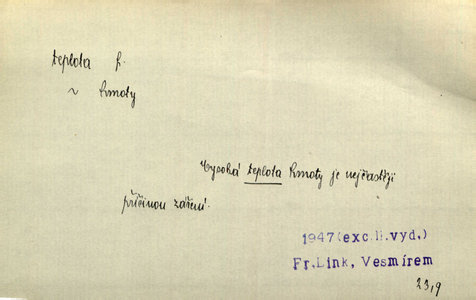 teplota f.
~ hmoty
Vysoká teplota hmoty je nejčastěji
příčinou záření.
1947 (exc. II. vyd.)
Fr. Link, Vesmírem
23,9